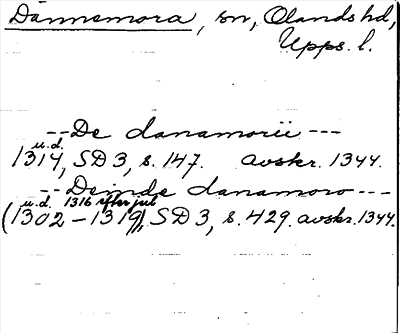 Dannemora, sn, Olands hd,
Upps. l.
--- De danamorii ---
u.d.
1314, SD 3, s. 147. avskr. 1344.
--- Deinde danamoro ---
u.d. 1316 efter juli
(1302-1319), SD 3, s. 429. avskr. 1344.